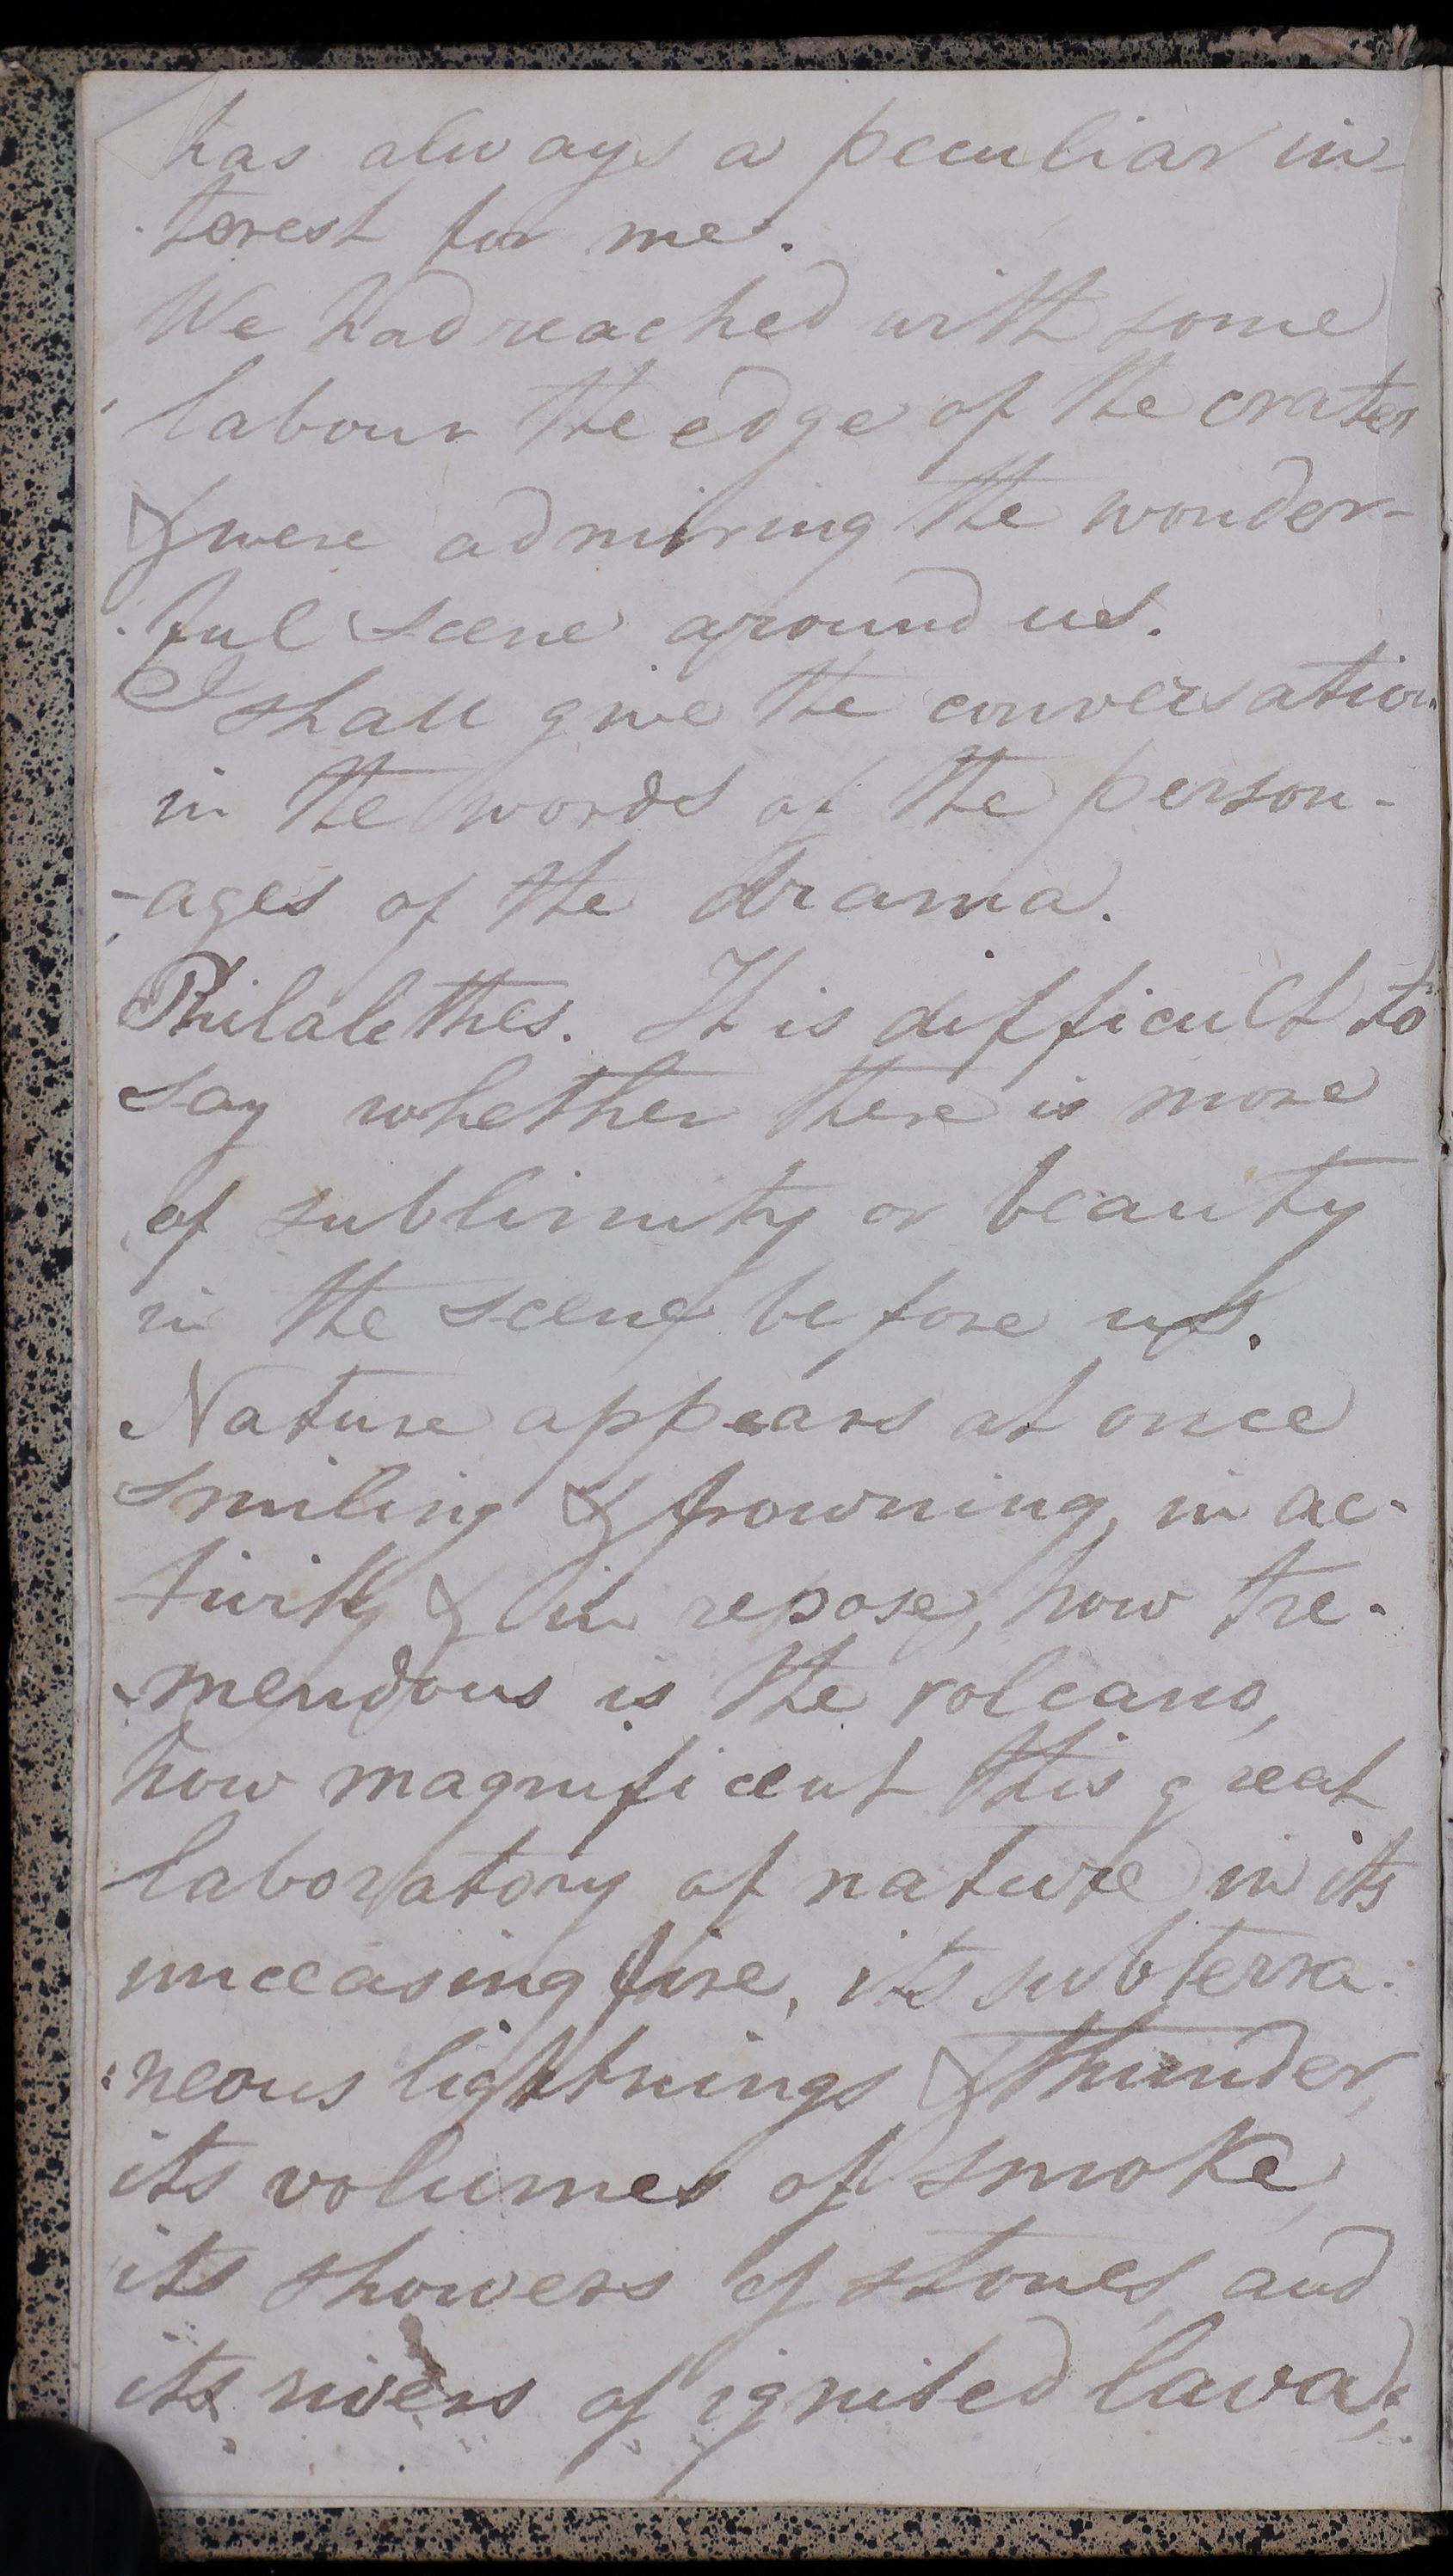 has always a peculiar in-
terest for me.
We had reached with some
labour the edge of the crater
& were admiring the wonder-
ful scene around us.
I shall give the conversation
in the words of the person-
-ages of the drama.
Philalethes. It is difficult to
say whether there is more
of sublimity or beauty
in the scene before us.
Nature appears at once
smiling & frowning, in ac-
tivity & in repose, how tre-
mendous is the volcano,
how magnificent this great
laboratory of nature in its
unceasing fire, its subterra-
neous lightnings & thunder,
its volumes of smoke,
its showers of stones, and
its rivers of ignited lava;